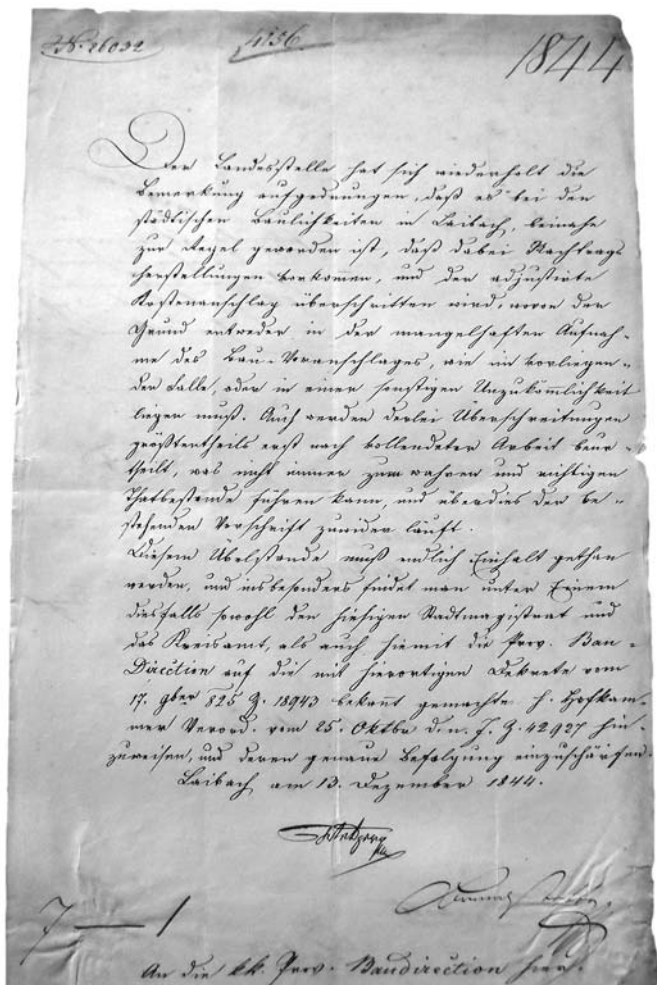 N. 26032
4156
1844
Der Landesstelle hat sich wiederholt die
Bemerkung aufgedrungen, daß es bei den
städtischen Baulichkeiten in Laibach, beinahe
zur Regel geworden ist, daß dabei Nachtrags
herstellungen vorkommen, und der adjustirte
Kostenanschlag überschritten wird, wovon der
Grund entweder in der mangelhaften Aufnah-
me des Bau-Voranschlages, wie im vorliegen-
den Falle, oder in einer sonstigen Unzukömmlichkeit
liegen muß. Auch werden derlei Überschreitungen
größtentheils erst nach vollendeter Arbeit beur-
theilt, was nicht immer zum wahren und richtigen
Thatbestande führen kann, und überdies der be-
stehenden Vorschrift zuwider läuft.
Diesem Übelstande muß endlich Einhalt gethan
werden, und insbesonders findet man unter Einem
diesfalls sowohl den hiesigen Stadtmagistrat und
das Kreisamt, als auch hiemit die Prov. Bau-
Direction auf die mit hierortigen Dekrete vom
17. 9ber 825 Z. 18943 bekannt gemachte h. Hofkam-
mer Verord. vom 25. Oktbr d. n. J. Z. 42927 hin-
zuweisen, und deren genaue Befolgung einzuschärfen.
Laibach am 13. Dezember 1844.
7 — 1
An die kk. Prov. Baudirection hier.